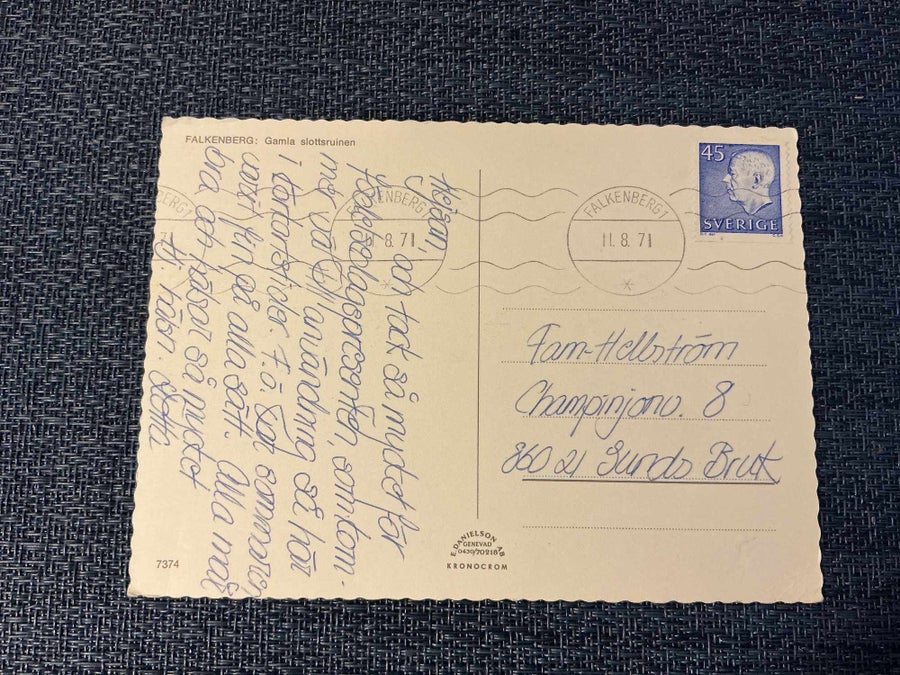 FALKENBERG: Gamla slottsruinen
45
SVERIGE
FALKENBERG 1
11.8.71
ENBERG 1
11.8.71
ERG 1
71
Hejsan, och tack så mycket för
födelsedagspresenten, som kom
mer väl i användning så här
i
två på alla sätt. Alla mår
bra och hälsar så mycket
Lotta
Fam-Hellström
Champinjonv. 8
860 21 Sunds Bruk
E. DANIELSON AB
GENEVAD
0430/70218
KRONOCROM
7374